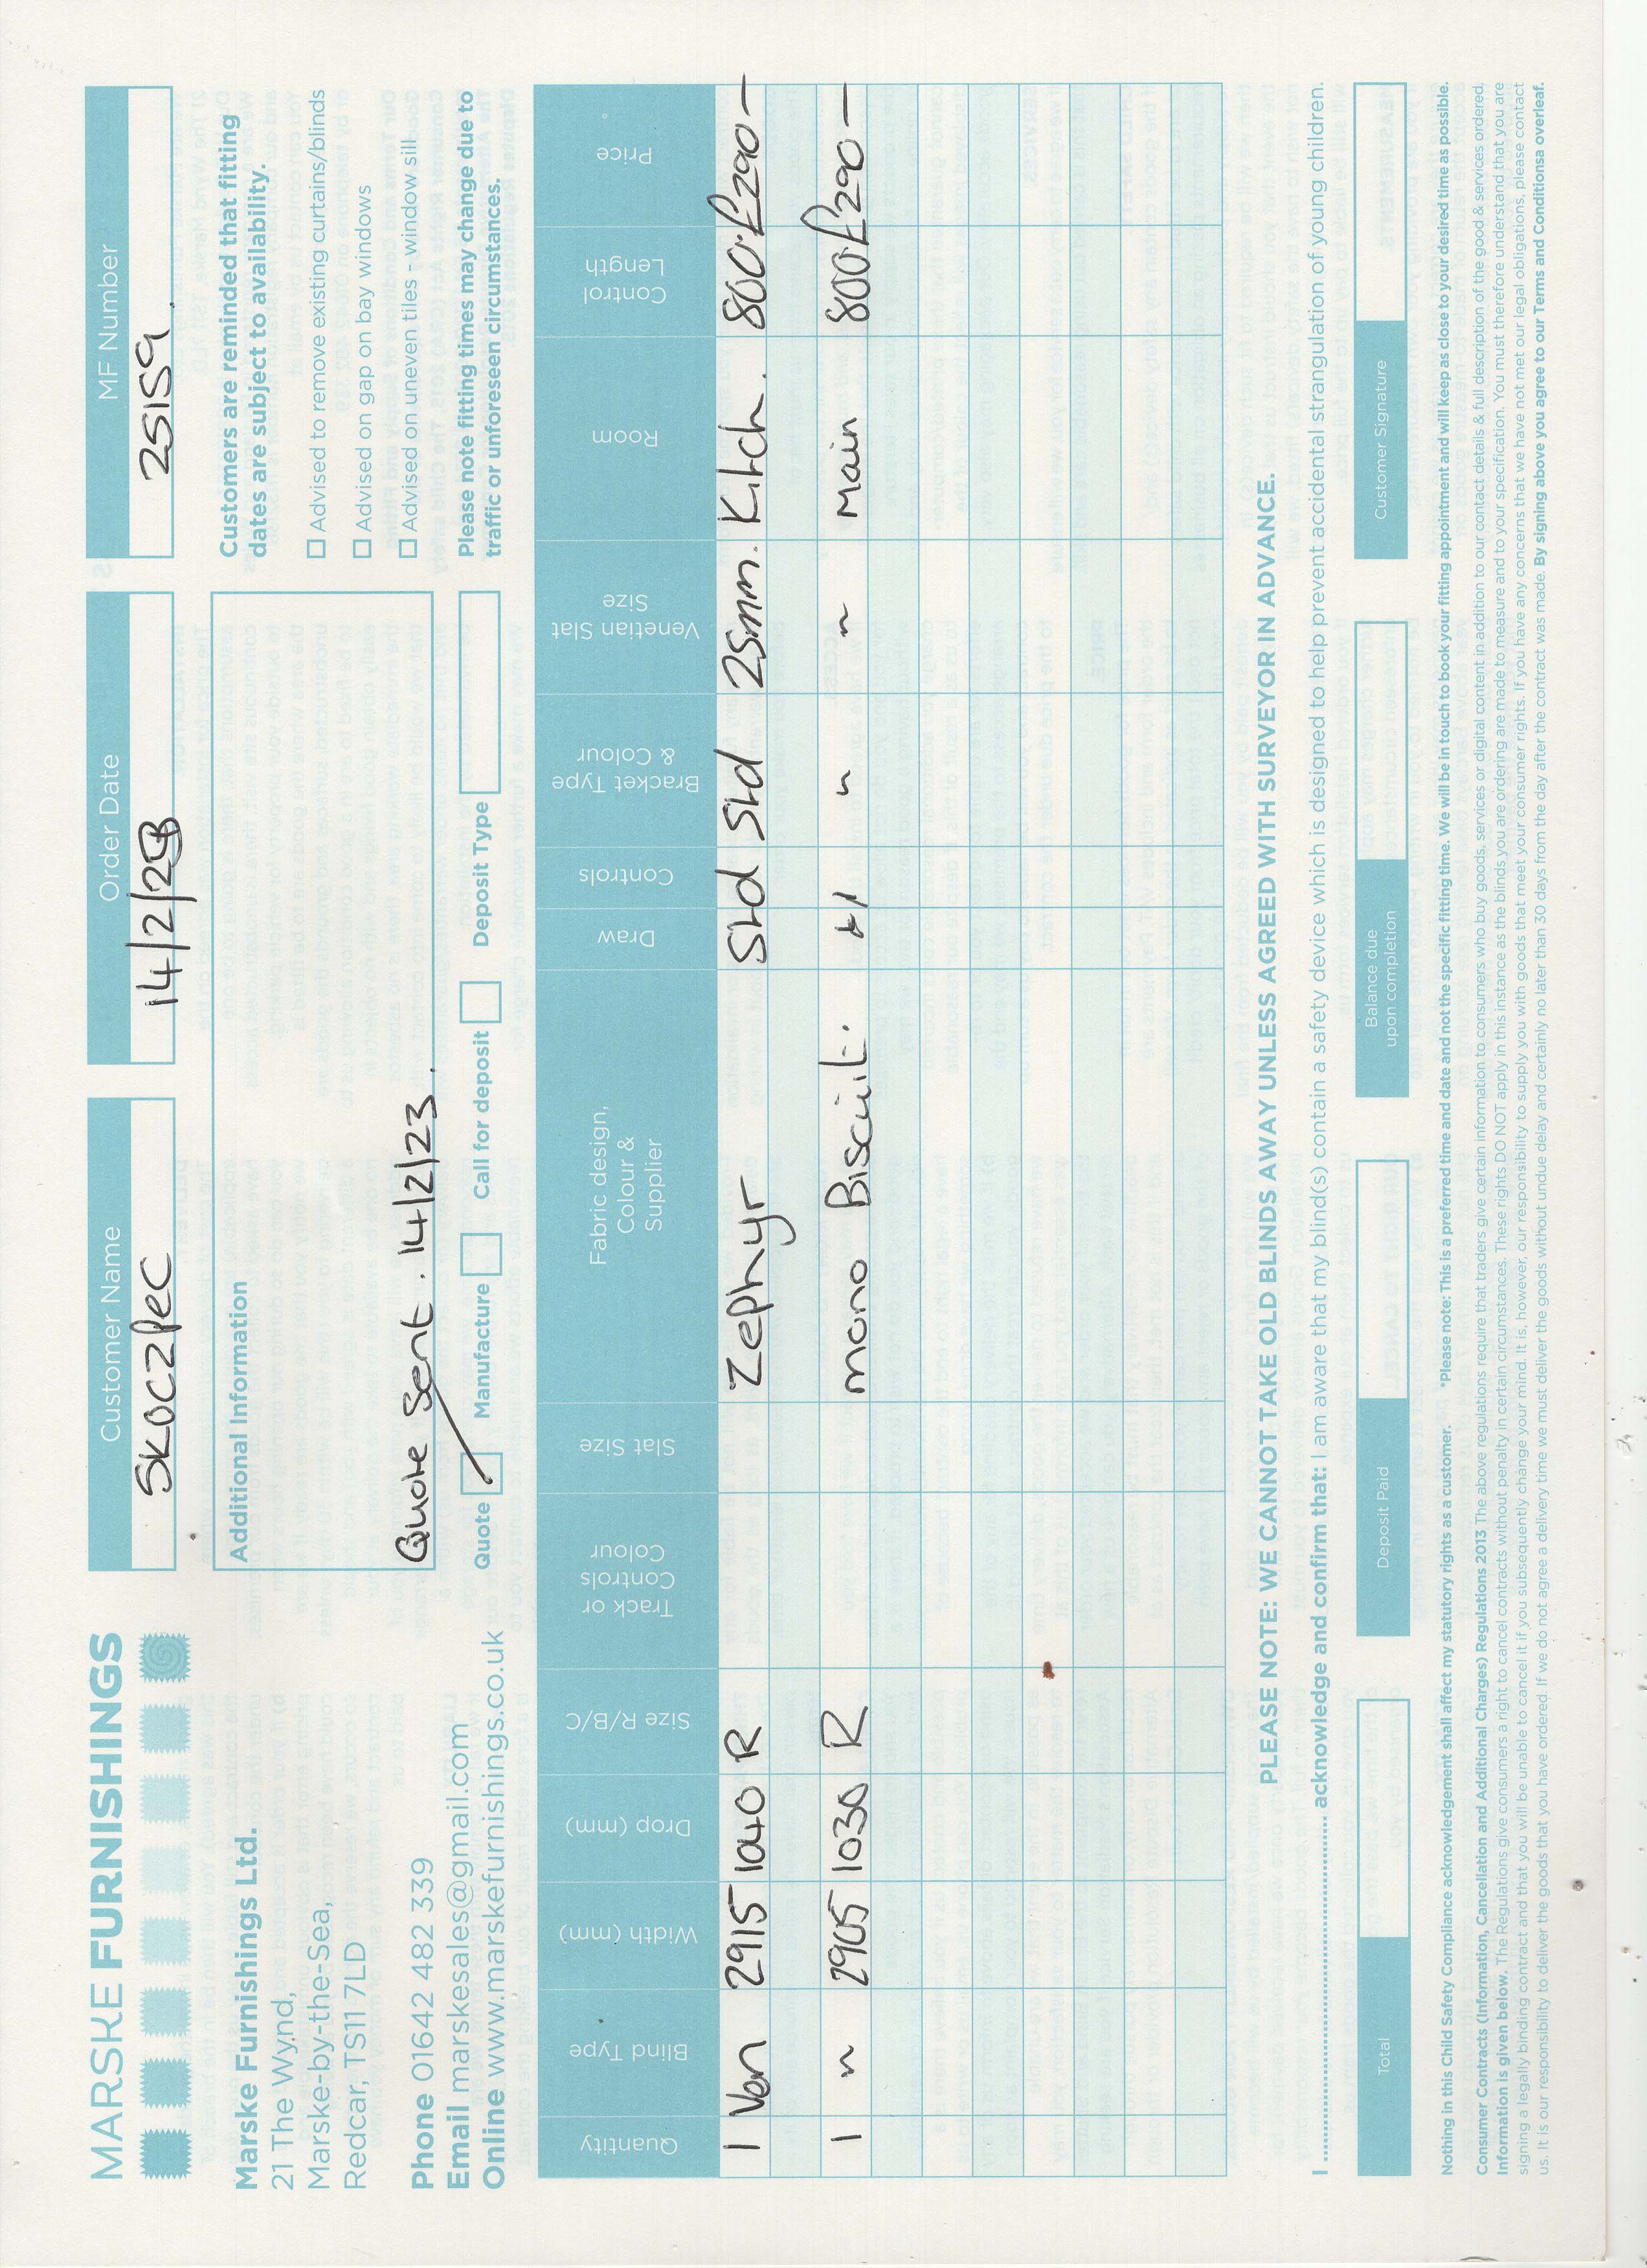 MARSKE FURNISHINGS
Marske Furnishings Ltd.
21 The Wynd,
Marske-by-the-Sea,
Redcar, TS11 7LD
Phone 01642 482 339
Email marskesales@gmail.com
Online www.marskefurnishings.co.uk
Customer Name
SKOCZPEC
Order Date
14/2/23
MF Number
25159.
Additional Information
Quote Sent. 14/2/23.
Quote Manufacture Call for deposit Deposit Type
Customers are reminded that fitting
dates are subject to availability.
Advised to remove existing curtains/blinds
Advised on gap on bay windows
Advised on uneven tiles - window sill
Please note fitting times may change due to
traffic or unforeseen circumstances.
Quantity Blind Type Width (mm) Drop (mm) Size R/B/C Track or Controls Colour Slat Size Fabric design, Colour & Supplier Draw Controls Bracket Type & Colour Venetian Slat Size Room Control Length Price
1 Ven 2915 1040 R Zephyr Std Std 25mm. Kitch. 800 £290—
1 " 2905 1030 R mono Biscuit. " " Main 800 £290—
PLEASE NOTE: WE CANNOT TAKE OLD BLINDS AWAY UNLESS AGREED WITH SURVEYOR IN ADVANCE.
I.................... acknowledge and confirm that: I am aware that my blind(s) contain a safety device which is designed to help prevent accidental strangulation of young children.
Total Deposit Paid Balance due upon completion Customer Signature
Nothing in this Child Safety Compliance acknowledgement shall affect my statutory rights as a customer. *Please note: This is a preferred time and date and not the specific fitting time. We will be in touch to book your fitting appointment and will keep as close to your desired time as possible.
Consumer Contracts (Information, Cancellation and Additional Charges) Regulations 2013 The above regulations require that traders give certain information to consumers who buy goods, services or digital content in addition to our contact details & full description of the good & services ordered.
Information is given below. The Regulations give consumers a right to cancel contracts without penalty in certain circumstances. These rights DO NOT apply in this instance as the blinds you are ordering are made to measure and to your specification. You must therefore understand that you are
signing a legally binding contract and that you will be unable to cancel it if you subsequently change your mind. It is, however, our responsibility to supply you with goods that meet your consumer rights. If you have any concerns that we have not met our legal obligations, please contact
us. It is our responsibility to deliver the goods that you have ordered. If we do not agree a delivery time we must deliver the goods without undue delay and certainly no later than 30 days from the day after the contract was made. By signing above you agree to our Terms and Conditionsa overleaf.